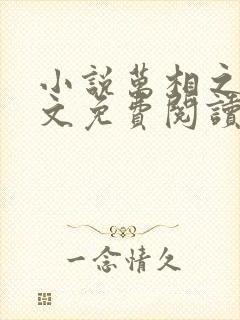 小說萬相之
文免費閱讀
一念情久